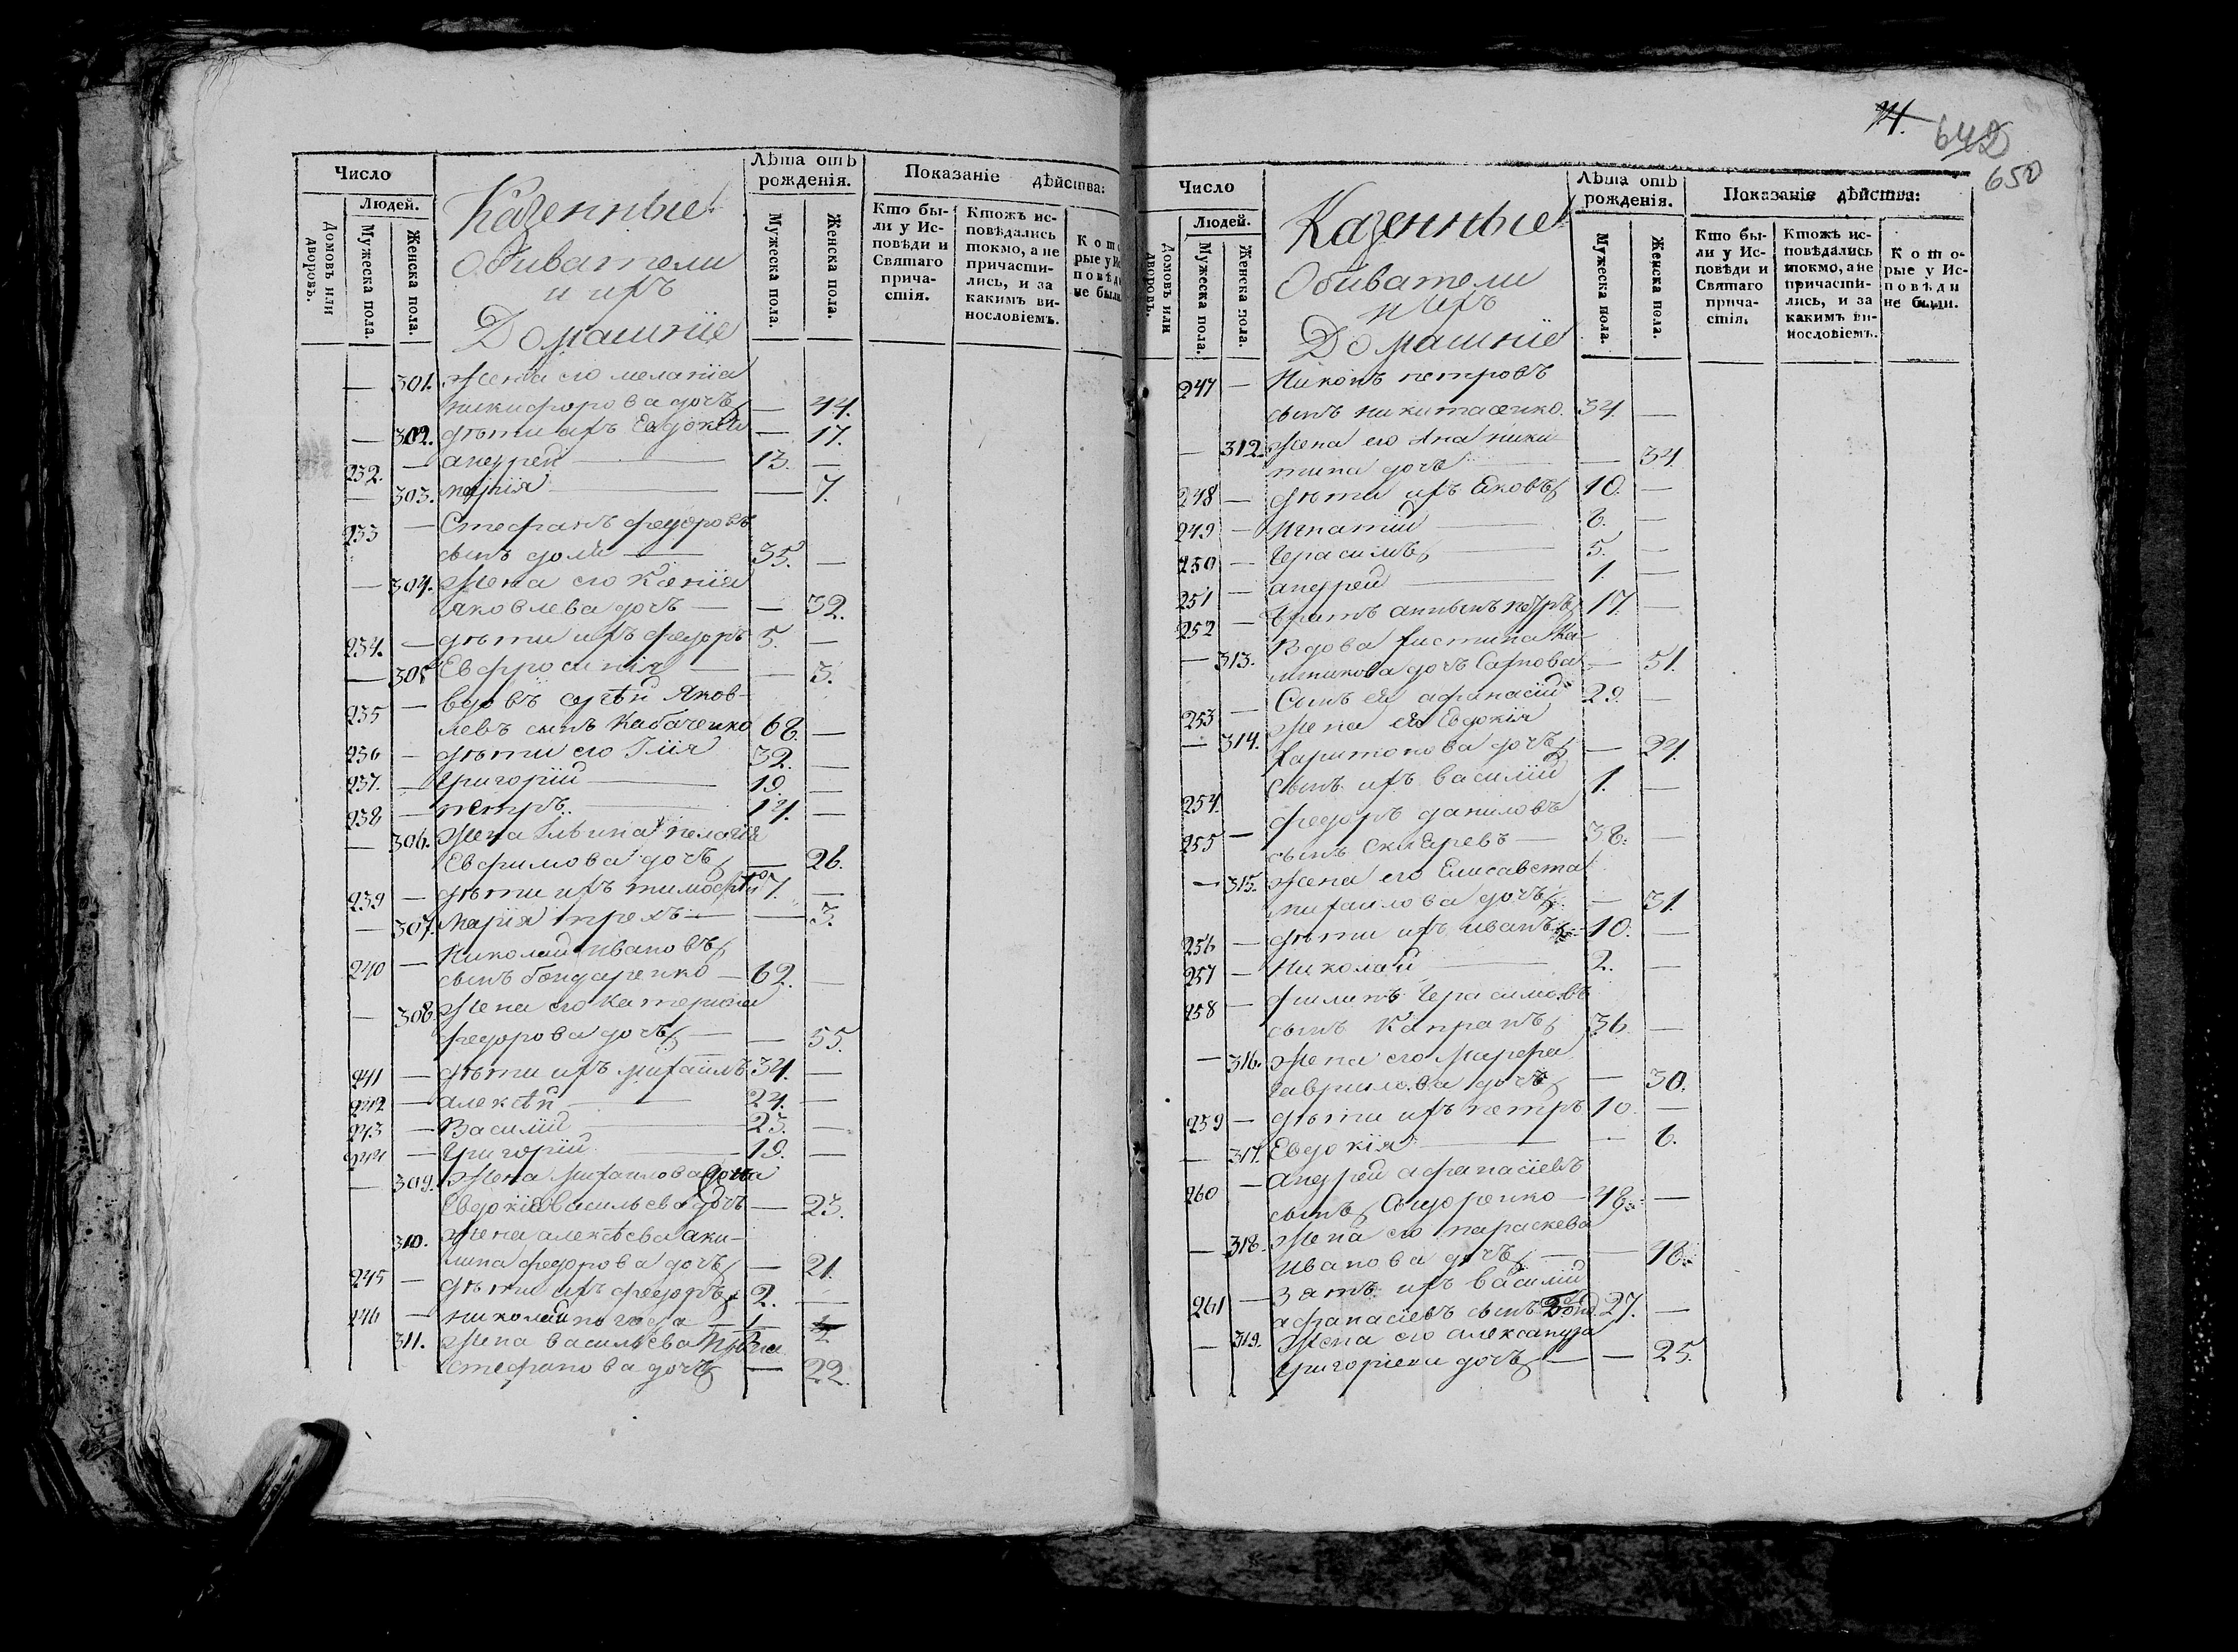 Число
Людей.
Домовъ или дворовъ.
Мужеска пола.
Женска пола.
Казенные
Обиватели
и ихъ
Домашніе
Лѣта отъ рожденія.
Мужеска пола.
Женска пола.
Показаніе дѣйства:
Кто бы-
ли у Ис-
повѣди и
Святаго
прича-
стія.
Ктожъ ис-
повѣдались
токмо, а не
причасти-
лись, и за
какимъ ви-
нословіемъ.
— 301. Жена его меланія
никифорова дочь — 44.
— 302. дѣти ихъ Евдокія — 17.
232. — андрей 13. —
— 303. марія — 7.
233 — Стефанъ федоровъ
сынъ 35. —
— 304. Жена его Ксенія
яковлева дочь — 32.
234. — дѣти ихъ федоръ 5. —
— 305 Евфросинія — 3.
235 — вдовъ Яков-
левъ сынъ Кабаченко 68. —
236 — дѣти его Ілія 32. —
237. — Григорій 19. —
238 — петръ 14. —
— 306. Жена Ільина пелагія
Евфимова дочь — 26.
239 — дѣти ихъ тимофѣй 7. —
— 307. Марія — 3.
240 — Николай Ивановъ
сынъ бондаренко 62. —
— 308. Жена его Катерина
федорова дочь — 55.
241 — дѣти ихъ михаилъ 34. —
242 — алексѣй 24. —
243 — Василій 23. —
244 — Григорій 19. —
— 309. Жена Михаилова
Евдокія васильева дочь — 23.
310. Жена алексѣева аку-
лина федорова дочь — 21.
245 — дѣти ихъ федоръ 2. —
246 — николай 1
311. Жена васильева
Стефанова дочь — 22.
74.
642
650
Число
Людей.
Домовъ или дворовъ.
Мужеска пола.
Женска пола.
Казенные
Обиватели
и ихъ
Домашніе
Лѣта отъ рожденія.
Мужеска пола.
Женска пола.
Показаніе дѣйства:
Кто бы-
ли у Ис-
повѣди и
Святаго
прича-
стія.
Ктожъ ис-
повѣдались
токмо, а не
причасти-
лись, и за
какимъ ви-
нословіемъ.
Кото-
рые у Ис-
повѣди
не были.
247 — Никонъ петровъ
сынъ никитаенко. 34. —
— 312. Жена его Анна ники-
тина дочь — 34.
248 — дѣти ихъ Яковъ 10. —
249 — Игнатій 8. —
250 — Герасимъ 5. —
251 — андрей 1. —
252 — братъ петръ 17. —
— 313. Вдова
дочь — 51.
253 — Сынъ ея афанасій 29. —
— 314. Жена его Евдокія
харитонова дочь — 24.
254. сынъ ихъ василій 1.
255 — федоръ даниловъ
сынъ 38. —
— 315. Жена его Елисавета
михаилова дочь — 31.
256 — дѣти ихъ иванъ 10. —
257 — Николай 2. —
258 — филипъ Герасимовъ
сынъ Капранъ 36. —
— 316. Жена его Марфа
гаврилова дочь — 30.
259 — дѣти ихъ петръ 10. —
— 317. Евдокія — 6.
260 — андрей афанасіевъ
сынъ Сидоренко — 48. —
— 318. Жена его параскева
иванова дочь — 48.
261 — зять ихъ василій
афанасіевъ сынъ 27. —
— 319. Жена его александра
григоріева дочь — 25.